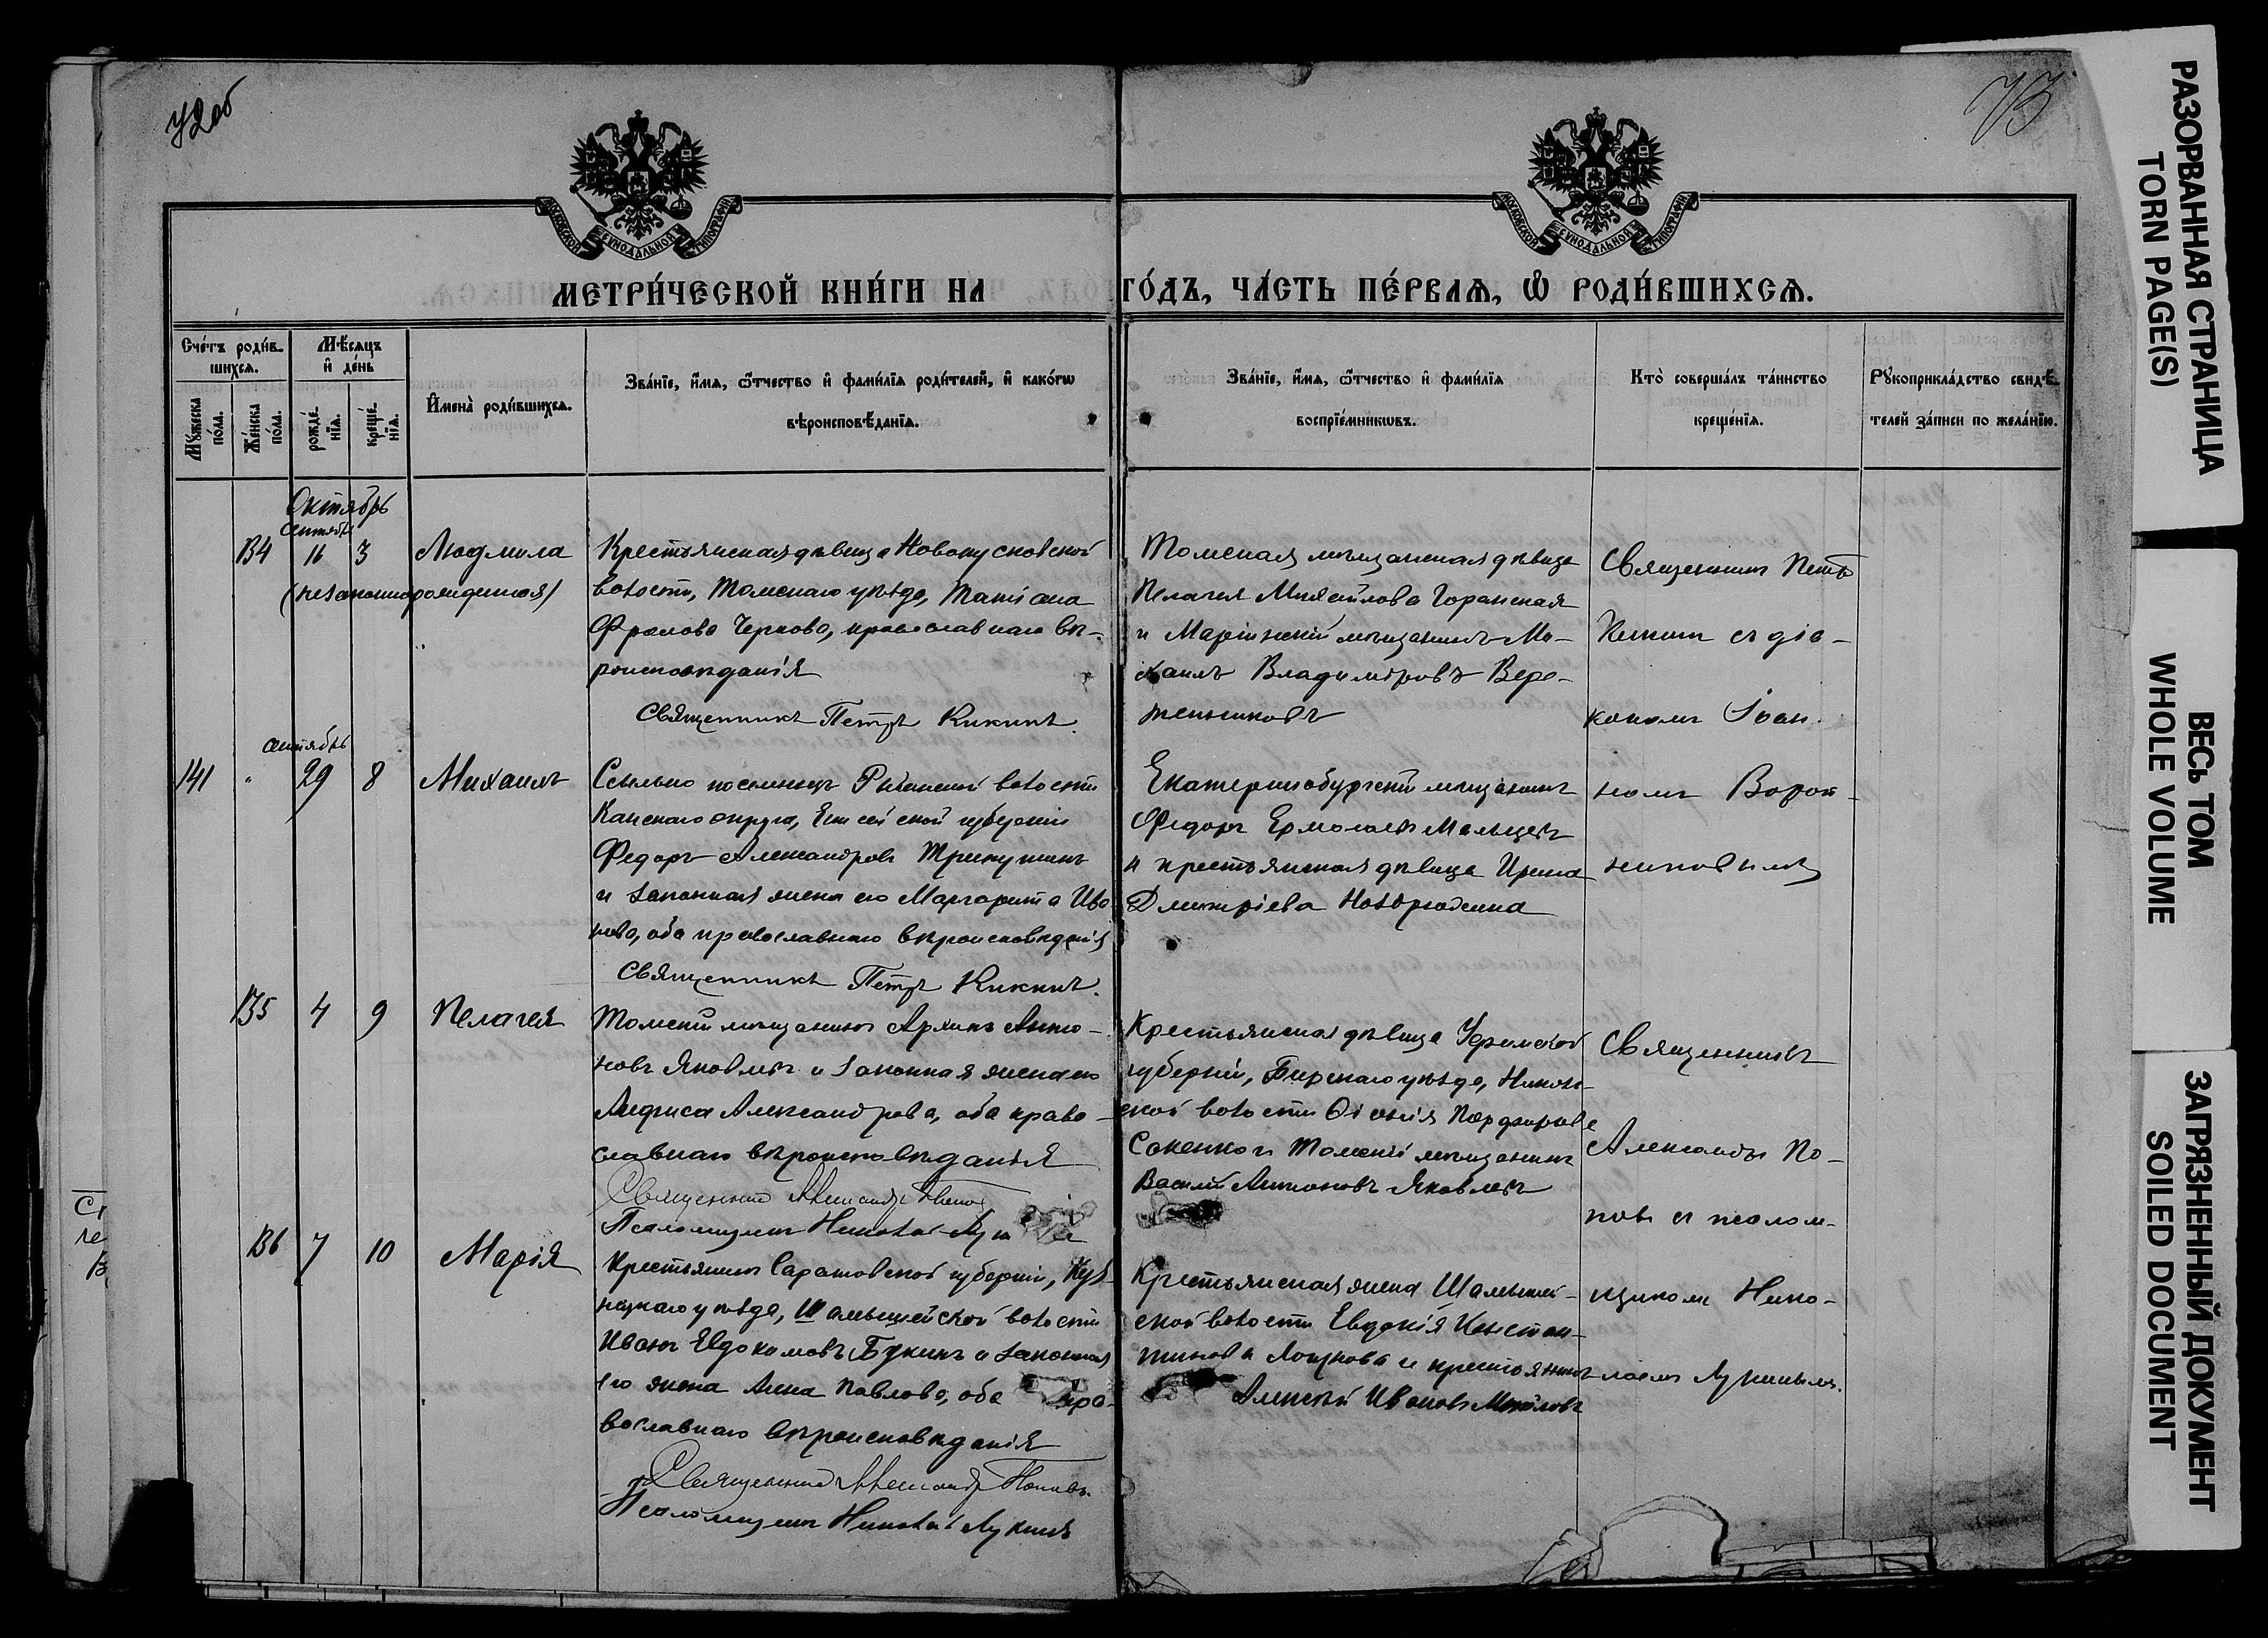 72об
73
МОСКОВСКОЙ СѴНОДАЛЬНОЙ ТИПОГРАФІИ
МОСКОВСКОЙ СѴНОДАЛЬНОЙ ТИПОГРАФІИ
МЕТРИ́ЧЕСКОЙ КНИ́ГИ НА
ГО́ДЪ, ЧА́СТЬ ПЕ́РВАѦ, Ѡ РОДИ́ВШИХСѦ.
Сче́тъ роди́в-
шихсѧ.
Мѣ́сѧцъ
и҆ де́нь
Мꙋ́жеска
по́ла.
Же́нска
по́ла.
рожде́-
нїѧ.
креще́-
нїѧ.
И҆мена̀ роди́вшихсѧ.
Зва́нїе, и҆́мѧ, ѻ҆́тчество и҆ фами́лїѧ роди́телей, и҆ како́гѡ
вѣроисповѣ́данїѧ.
Зва́нїе, и҆́мѧ, ѻ҆́тчество и҆ фами́лїѧ
воспрїе́мникѡвъ.
Кто̀ соверша́лъ та́инство
креще́нїѧ.
Рꙋкоприкла́дство свидѣ́-
телей за́писи по жела́нїю.
Октябрь
сентябрь
134 16 3 Людмила
(незаконнорожденная)
Крестьянская дѣвица Новокусковской
волости, Томскаго уѣзда, Татіана
Фролова Чернова, православнаго вѣ-
роисповѣданія
Священникъ Петръ Кикинъ.
Томская мѣщанская дѣвица
Пелагея Михайлова Горанская
и Маріинскій мѣщанинъ Ми-
хаилъ Владиміровъ Вере-
тенниковъ
Священникъ Петръ
Кикинъ съ діа-
кономъ Іоан-
номъ Ворон-
сентябрь
141 " 29 8 Михаилъ
Ссыльно поселенецъ Рыбинской волости
Канскаго округа, Енисейской губерніи
Федоръ Александровъ Трикушинъ
и законная жена его Маргарита Ива
нова, оба православнаго вѣроисповѣданія
Священникъ Петръ Кикинъ.
Екатеринобургскій мѣщанинъ
Федоръ Ермолаевъ Мальцевъ
и крестьянская дѣвица Ирина
Дмитріева
135 4 9 Пелагея
Томскій мѣщанинъ Архипъ Анто-
новъ Яковлевъ и законная жена его
Лариса Александрова, оба право-
славнаго вѣроисповѣданія
Священникъ Александръ Поповъ
Псаломщикъ Николай
Крестьянская дѣвица Уфимской
губерніи, Бирскаго уѣзда, Никол-
ской волости Порфирова
и Томскій мѣщанинъ
Василій Антоновъ Яковлевъ
Священникъ
Александръ По-
повъ съ псалом-
щикомъ Нико-
лаемъ Лукинымъ.
136 7 10 Марія
Крестьянинъ Саратовской губерніи, Куз-
нецкаго уѣзда, Шамышейской волости
Иванъ Евдокимовъ Букинъ и законная
его жена Анна Павлова, оба пра-
вославнаго вѣроисповѣданія
Священникъ Александръ Поповъ.
Псаломщикъ Николай Лукинъ
Крестьянская жена Шамышей-
ской волости Евдокія Констан-
тинова и крестьянинъ
Алексѣй Ивановъ
РАЗОРВАННАЯ СТРАНИЦА
TORN PAGE(S)
ВЕСЬ ТОМ
WHOLE VOLUME
ЗАГРЯЗНЕННЫЙ ДОКУМЕНТ
SOILED DOCUMENT